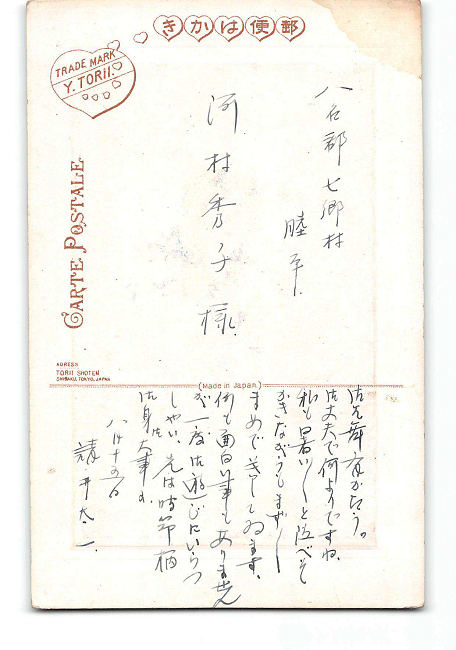 きかはは便郵
TRADE MARK
Y. TORII.
CARTE POSTALE
八名郡七郷村
睦平
河村秀子様
ADRESS
TORII SHOTEN
SHIBAKU, TOKYO, JAPAN
(Made in Japan)
御丈夫で何よりですね、
私も暑い〱と
まめで ゐます、
何も面白い事もありません
が一度御遊びにいらつ
しやい、先は時節柄
御身御大事に
八月十五日
井太一